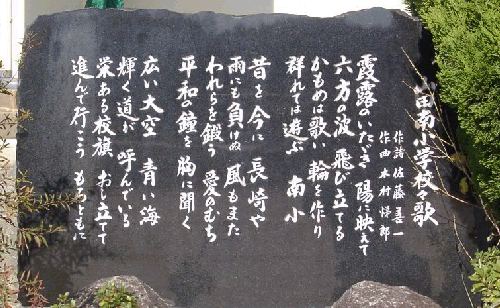 南小学校の歌
作詩 佐藤喜一
作曲 木村
霞露のいただき 陽に映えて
六方の波 飛び立てる
かもめは歌い 輪を作り
群れては遊ぶ 南小
昔を今に 長崎や
雨にも負けぬ 風もまた
われらを鍛う 愛のむち
平和の鐘を 胸に聞く
広い大空 青い海
輝く道が 呼んでいる
栄ある校旗 おし立てて
進んで行こう もろともに